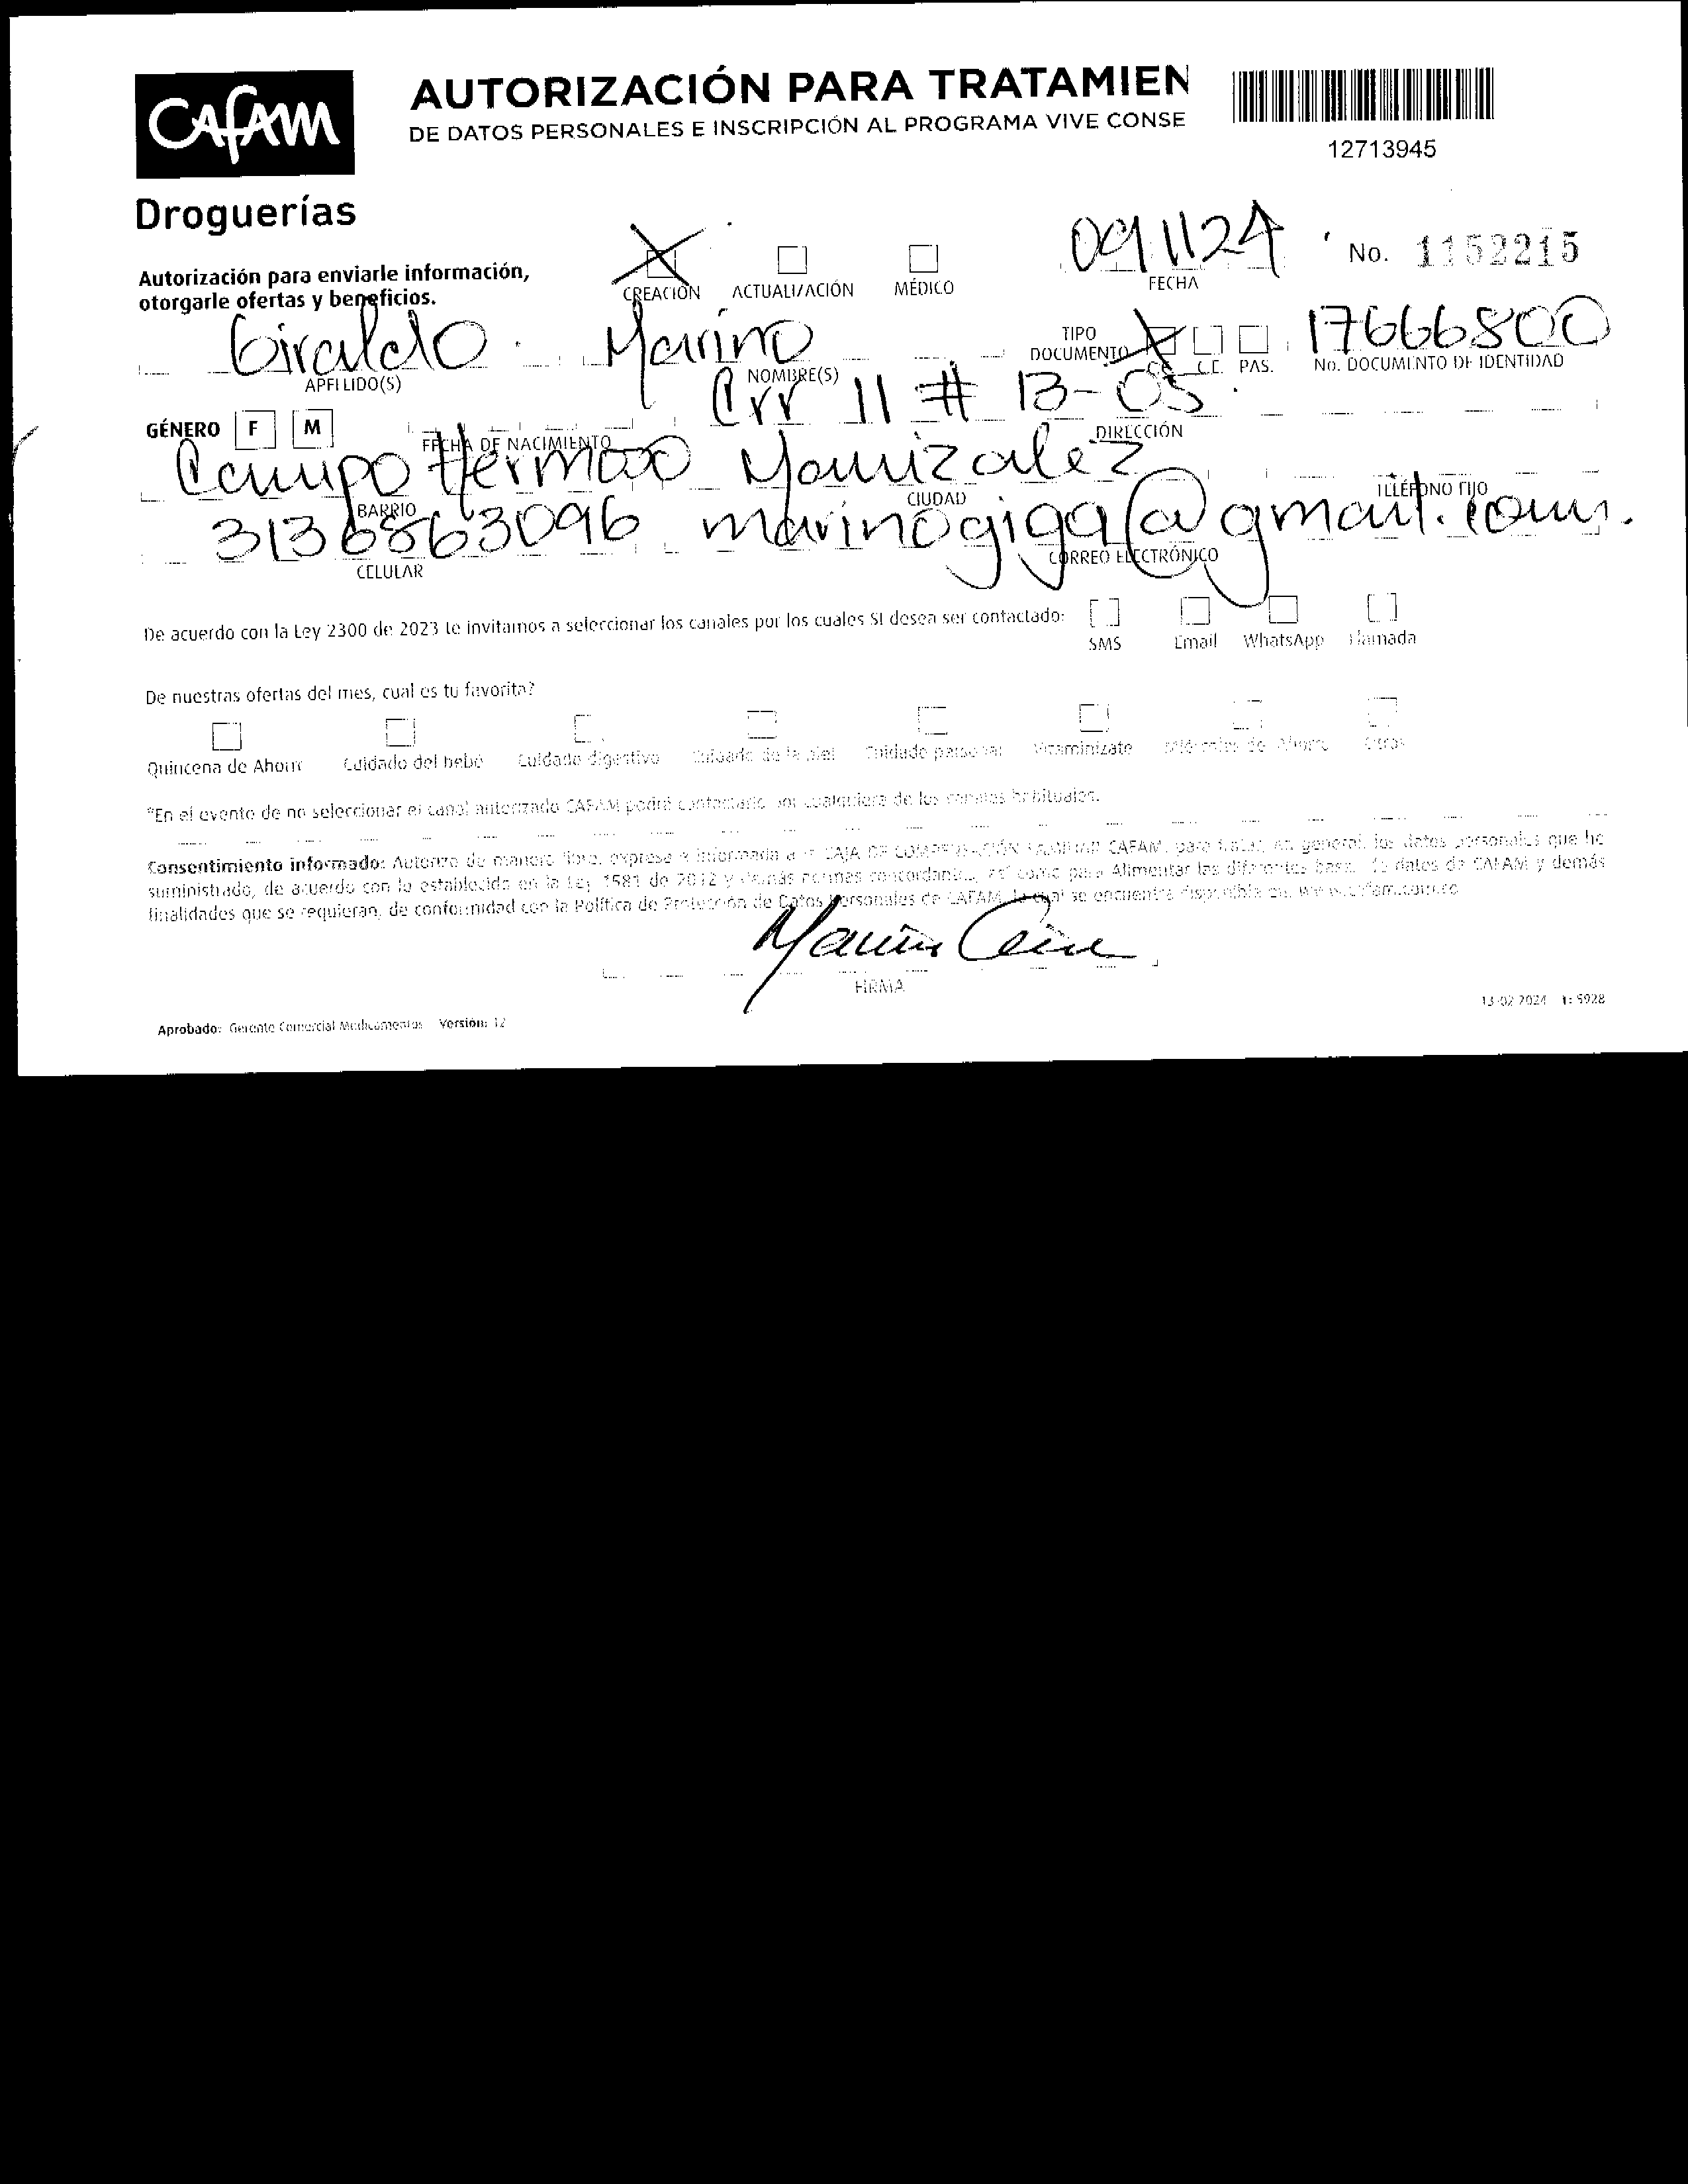 CAFAM
Droguerías
AUTORIZACIÓN PARA TRATAMIEN
DE DATOS PERSONALES E INSCRIPCIÓN AL PROGRAMA VIVE CONSE
12713945
Autorización para enviarle información,
otorgarle ofertas y beneficios.
CREACIÓN ACTUALIZACIÓN MÉDICO
091124
FECHA
No. 1152215
Giraldo Marino
APELLIDO(S) NOMBRE(S)
TIPO
DOCUMENTO
C.C. C.E. PAS.
17666800
No. DOCUMENTO DE IDENTIDAD
GÉNERO F M
FECHA DE NACIMIENTO
Crr 11 # 13-05
DIRECCIÓN
Campo Hermoso Manizalez
BARRIO CIUDAD TELÉFONO FIJO
3136863096 marinogiga@gmail.com.
CELULAR CORREO ELECTRÓNICO
De acuerdo con la Ley 2300 de 2023 te invitamos a seleccionar los canales por los cuales SI desea ser contactado:
SMS Email WhatsApp Llamada
De nuestras ofertas del mes, cual es tu favorita?
Quincena de Ahorro Cuidado del bebé Cuidado digestivo Cuidado de la piel Cuidado personal Vitaminízate Miércoles de Ahorro Otras
*En el evento de no seleccionar el canal autorizado CAFAM podrá contactarlo por cualquiera de los canales habituales.
Consentimiento informado: Autorizo de manera libre, expresa e informada a la CAJA DE COMPENSACIÓN FAMILIAR CAFAM, para tratar, en general, los datos personales que he
suministrado, de acuerdo con lo establecido en la Ley 1581 de 2012 y demás normas concordantes, así como para Alimentar las diferentes bases de datos de CAFAM y demás
finalidades que se requieran, de conformidad con la Política de Protección de Datos Personales de CAFAM, la cual se encuentra disponible en: www.cafam.com.co
FIRMA
13-02-2024 t: 5928
Aprobado: Gerente Comercial Medicamentos Versión: 12